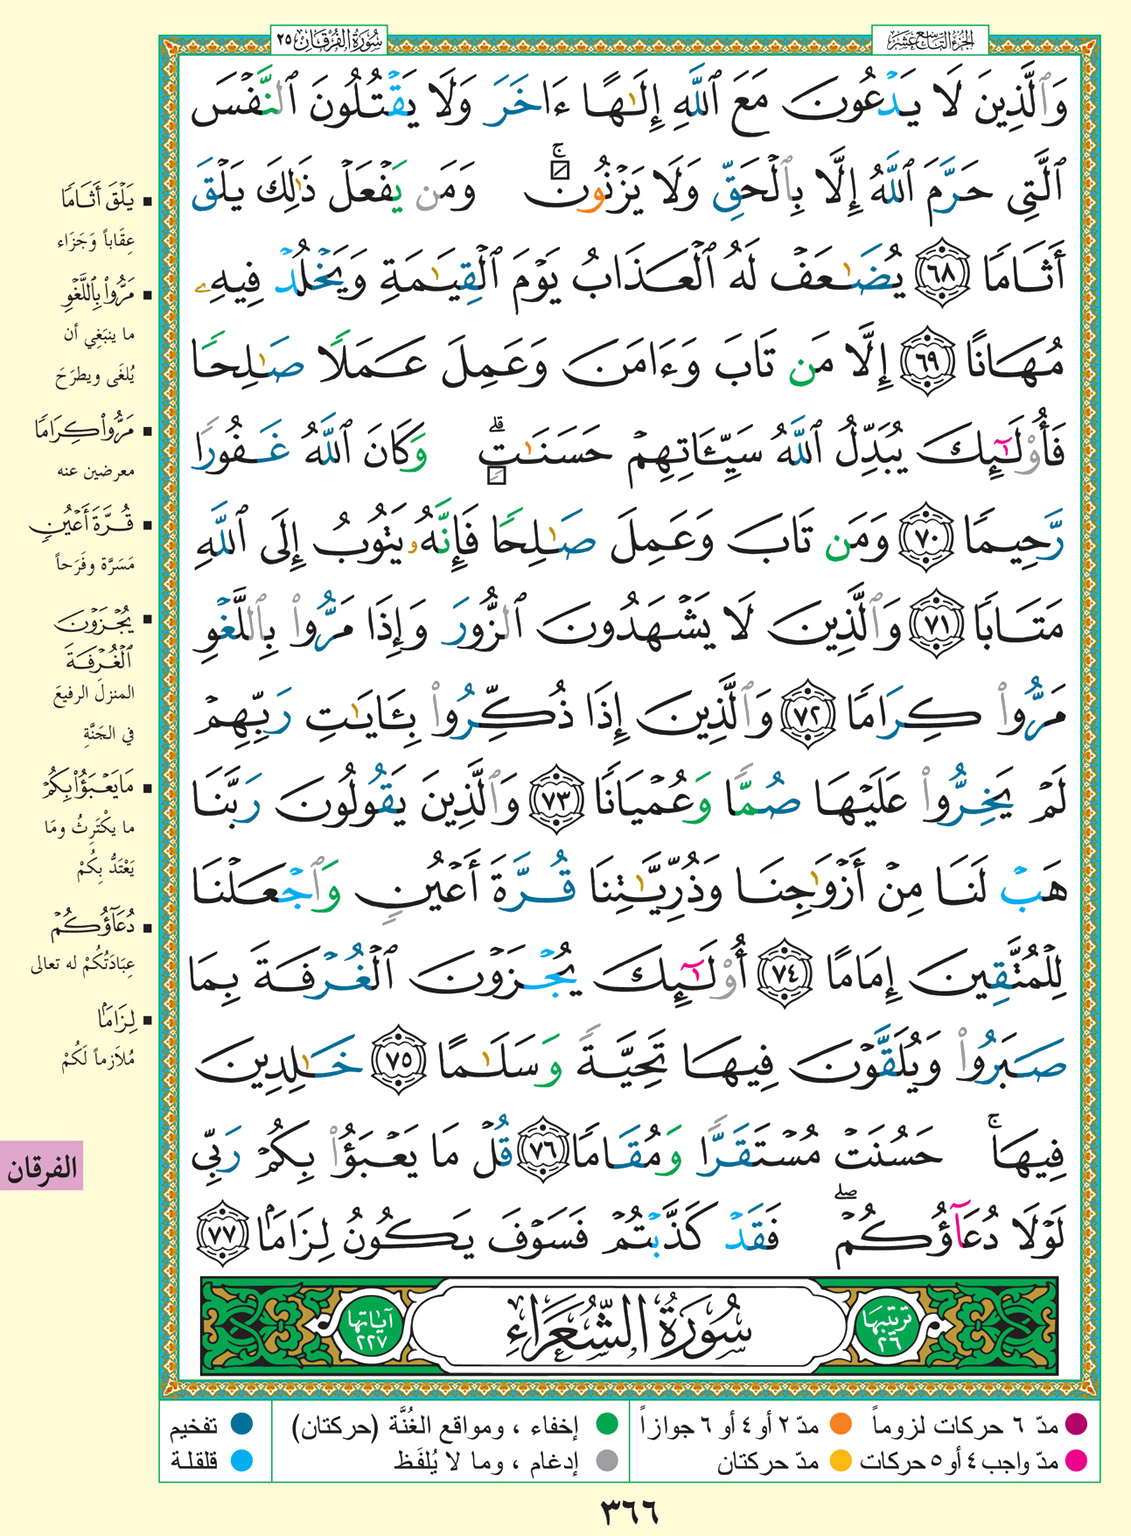 الجزء التاسع عشر
سورة الفرقان ٢٥
وَٱلَّذِينَ لَا يَدْعُونَ مَعَ ٱللَّهِ إِلَٰهًا ءَاخَرَ وَلَا يَقْتُلُونَ ٱلنَّفْسَ
ٱلَّتِى حَرَّمَ ٱللَّهُ إِلَّا بِٱلْحَقِّ وَلَا يَزْنُونَ ۚ وَمَن يَفْعَلْ ذَٰلِكَ يَلْقَ
أَثَامًا ٦٨ يُضَٰعَفْ لَهُ ٱلْعَذَابُ يَوْمَ ٱلْقِيَٰمَةِ وَيَخْلُدْ فِيهِۦ
مُهَانًا ٦٩ إِلَّا مَن تَابَ وَءَامَنَ وَعَمِلَ عَمَلًا صَٰلِحًا
فَأُو۟لَٰٓئِكَ يُبَدِّلُ ٱللَّهُ سَيِّـَٔاتِهِمْ حَسَنَٰتٍ ۗ وَكَانَ ٱللَّهُ غَفُورًا
رَّحِيمًا ٧٠ وَمَن تَابَ وَعَمِلَ صَٰلِحًا فَإِنَّهُۥ يَتُوبُ إِلَى ٱللَّهِ
مَتَابًا ٧١ وَٱلَّذِينَ لَا يَشْهَدُونَ ٱلزُّورَ وَإِذَا مَرُّوا۟ بِٱللَّغْوِ
مَرُّوا۟ كِرَامًا ٧٢ وَٱلَّذِينَ إِذَا ذُكِّرُوا۟ بِـَٔايَٰتِ رَبِّهِمْ
لَمْ يَخِرُّوا۟ عَلَيْهَا صُمًّا وَعُمْيَانًا ٧٣ وَٱلَّذِينَ يَقُولُونَ رَبَّنَا
هَبْ لَنَا مِنْ أَزْوَٰجِنَا وَذُرِّيَّٰتِنَا قُرَّةَ أَعْيُنٍ وَٱجْعَلْنَا
لِلْمُتَّقِينَ إِمَامًا ٧٤ أُو۟لَٰٓئِكَ يُجْزَوْنَ ٱلْغُرْفَةَ بِمَا
صَبَرُوا۟ وَيُلَقَّوْنَ فِيهَا تَحِيَّةً وَسَلَٰمًا ٧٥ خَٰلِدِينَ
فِيهَا ۚ حَسُنَتْ مُسْتَقَرًّا وَمُقَامًا ٧٦ قُلْ مَا يَعْبَؤُا۟ بِكُمْ رَبِّى
لَوْلَا دُعَآؤُكُمْ ۖ فَقَدْ كَذَّبْتُمْ فَسَوْفَ يَكُونُ لِزَامًۢا ٧٧
ترتيبها ٢٦
سُورَةُ الشُّعَرَاءِ
آياتها ٢٢٧
يَلْقَ أَثَامًا
عِقَاباً وَجَزَاء
مَرُّوا۟ بِٱللَّغْوِ
ما ينبَغِي أن
يُلغَى ويطرَحَ
مَرُّوا۟ كِرَامًا
معرضين عنه
قُرَّةَ أَعْيُنٍ
مَسَرَّة وفَرَحاً
يُجْزَوْنَ
ٱلْغُرْفَةَ
المنزلَ الرفيعَ
في الجَنَّةِ
مَا يَعْبَؤُا۟ بِكُمْ
ما يكْتَرِثُ ومَا
يَعْتَدُّ بِكُمْ
دُعَآؤُكُمْ
عِبَادَتُكُمْ له تعالى
لِزَامًۢا
مُلاَزماً لَكُمْ
الفرقان
مدّ ٦ حركات لزوماً
مدّ ٢ أو ٤ أو ٦ جوازاً
إخفاء ، ومواقع الغُنَّة (حركتان)
تفخيم
مدّ واجب ٤ أو ٥ حركات
مدّ حركتان
إدغام ، وما لا يُلفَظ
قلقلة
٣٦٦